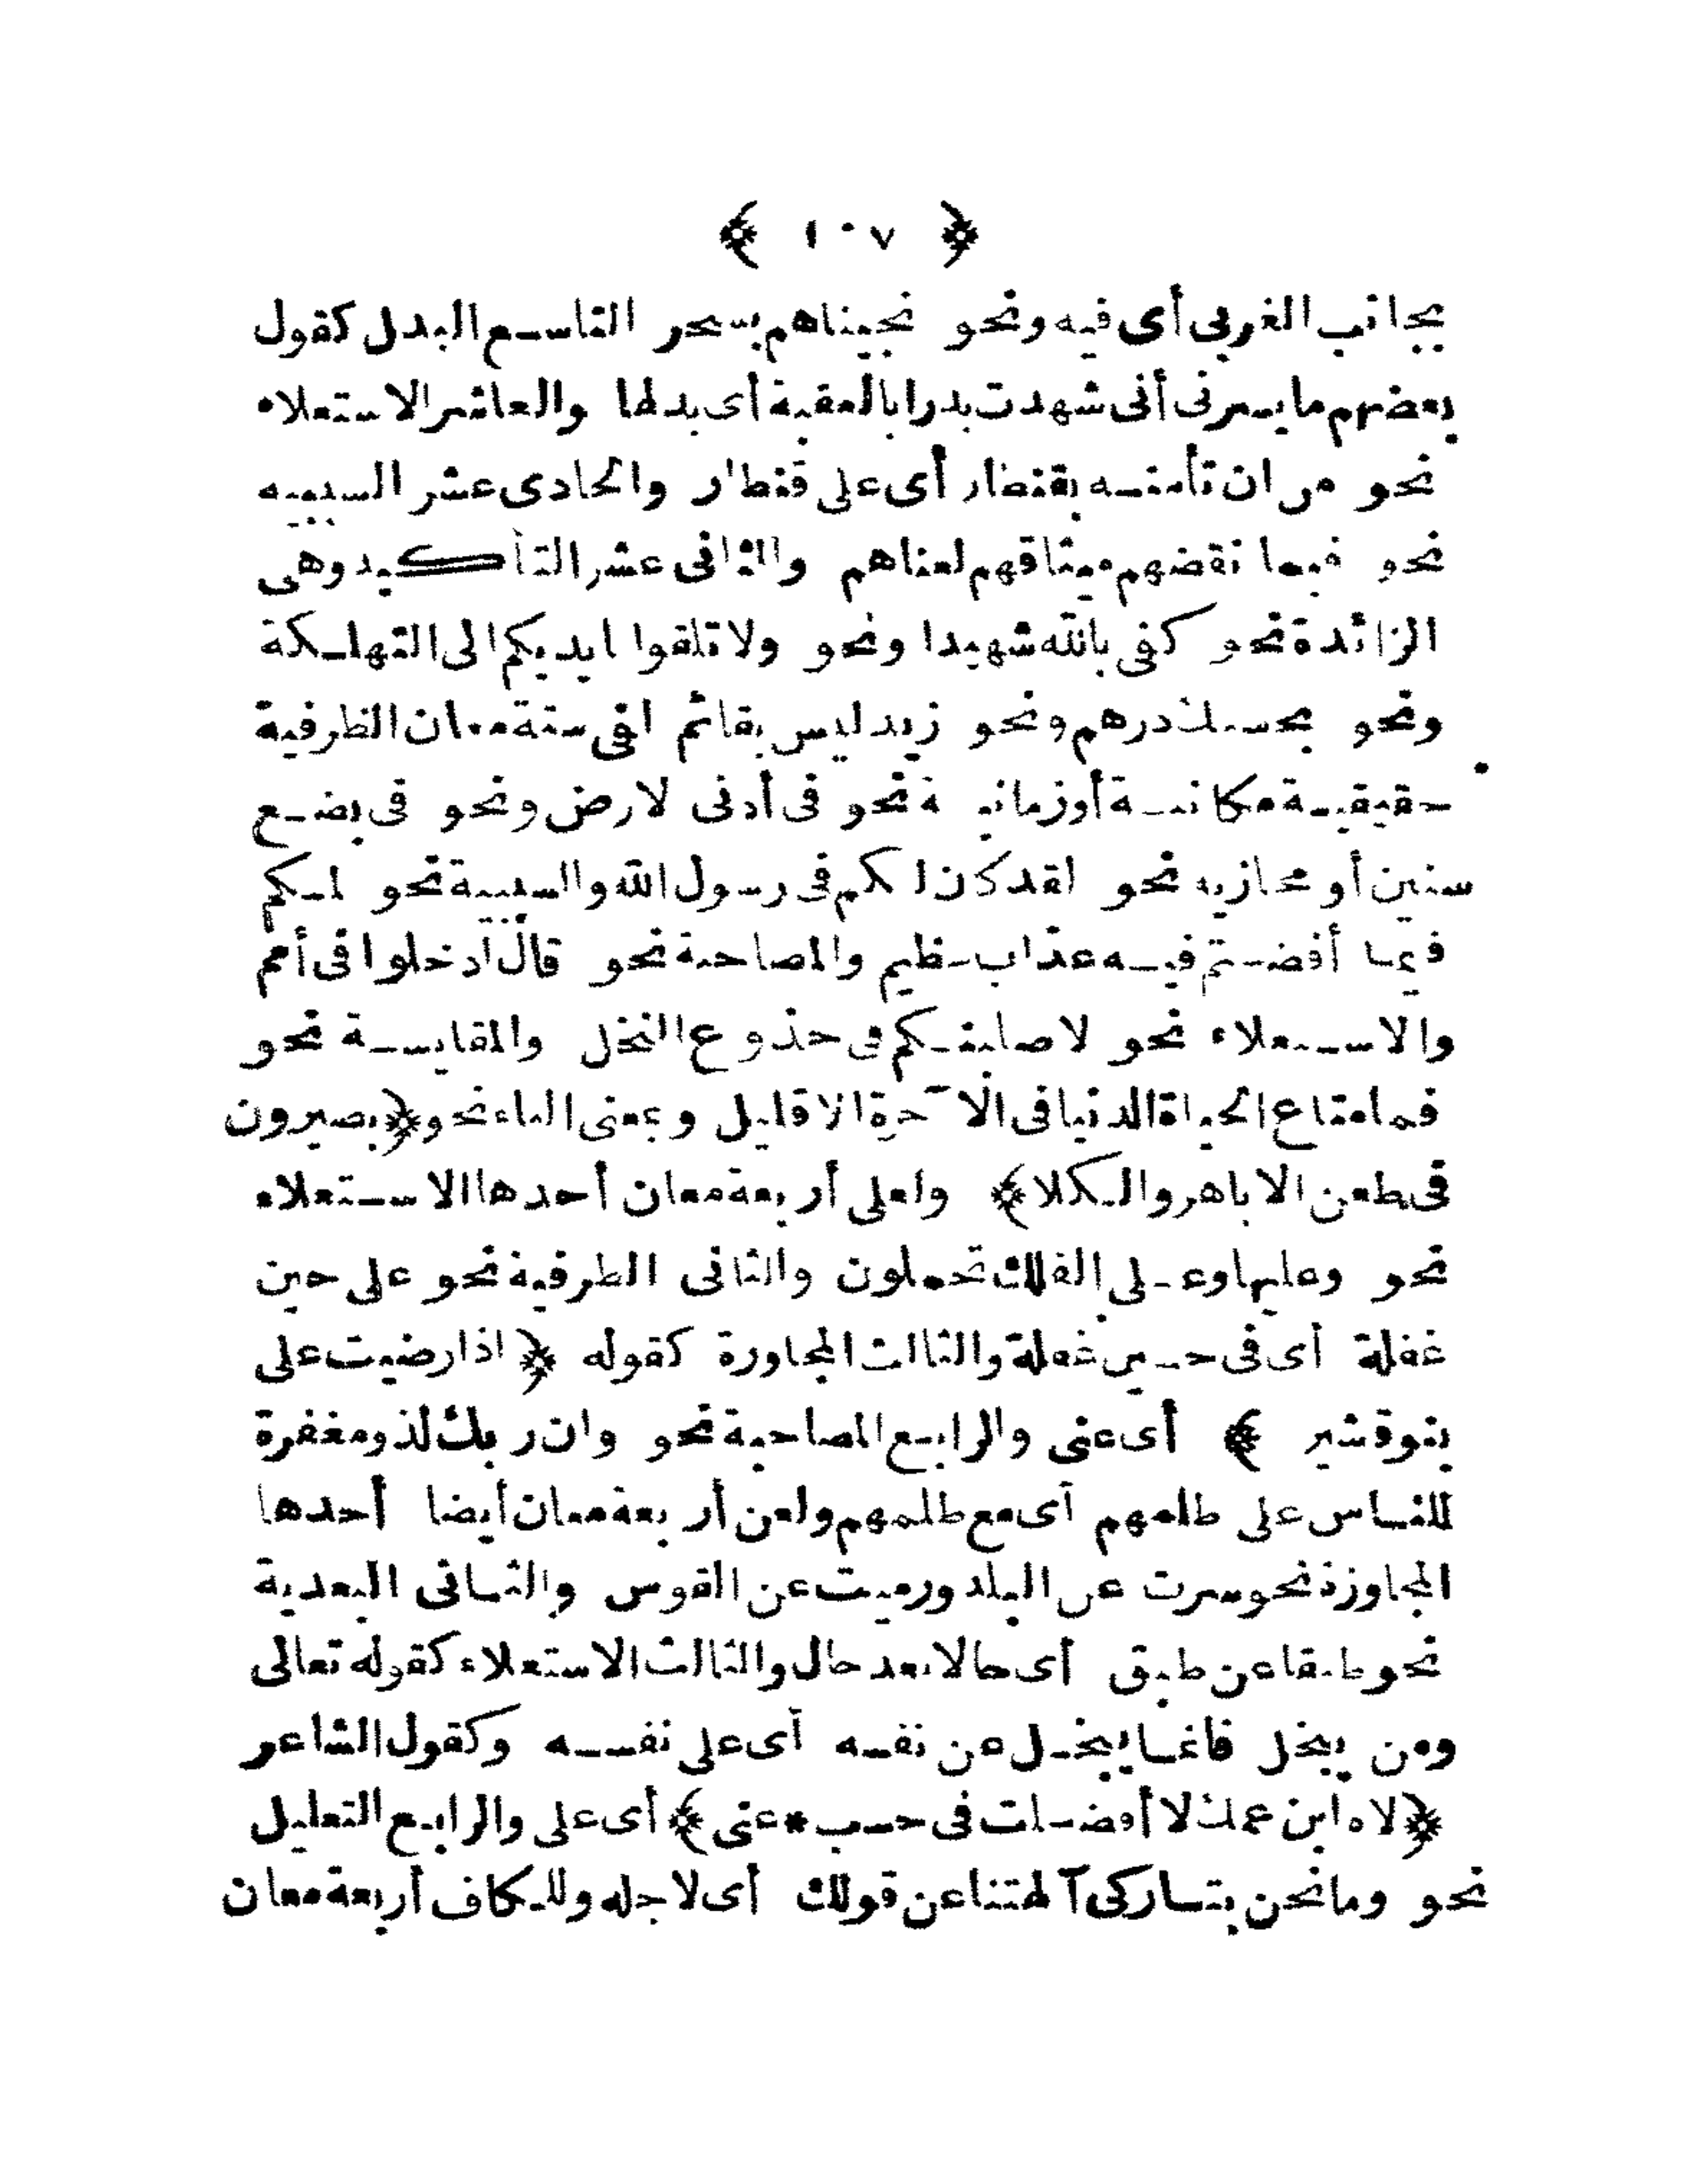 ﴿ ١٠٧ ﴾
بجانب الغربى أى فيه ونحو نجيناهم بسحر التاسع البدل كقول
بعضهم ما يسرنى أنى شهدت بدرا بالعقبة أى بدلها والعاشر الاستعلاء
نحو من ان تأمنه بقنطار أى على قنطار والحادى عشر السببيه
نحو فبما نقضهم ميثاقهم لعناهم والثانى عشر التأكيد وهى
الزائدة نحو كفى بالله شهيدا ونحو ولا تلقوا ايديكم الى التهلكة
ونحو بحسبك درهم ونحو زيد ليس بقائم لفى ستة معان الظرفية
حقيقية مكانية أو زمانية نحو فى أدنى لارض ونحو فى بضع
سنين أو مجازيه نحو لقد كان لكم فى رسول الله والسببية نحو لمسكم
فيما أفضتم فيه عذاب عظيم والمصاحبة نحو قال ادخلوا فى أمم
والاستعلاء نحو لاصلبنكم فى جذوع النخل والمقايسة نحو
فما متاع الحياة الدنيا فى الآخرة الا قليل وبمعنى الباء نحو ﴿بصيرون
فى طعن الاباهر والكلا﴾ ولعلى أربعة معان أحدها الاستعلاء
نحو وعليها وعلى الفلك تحملون والثانى الظرفية نحو على حين
غفلة أى فى حين غفلة والثالث المجاورة كقوله ﴿ اذا رضيت على
بنو قشير ﴾ أى عنى والرابع المصاحبة نحو وان ربك لذو مغفرة
للناس على ظلمهم أى مع ظلمهم ولعن أربعة معان أيضا أحدها
المجاوزة نحو سرت عن البلد ورميت عن القوس والثانى البعدية
نحو طبقا عن طبق أى حالا بعد حال والثالث الاستعلاء كقوله تعالى
ومن يبخل فانما يبخل عن نفسه أى على نفسه وكقول الشاعر
﴿لاه ابن عمك لا أفضلت فى حسب * عنى﴾ أى على والرابع التعليل
نحو وما نحن بتاركى آلهتنا عن قولك أى لاجله وللكاف أربعة معان